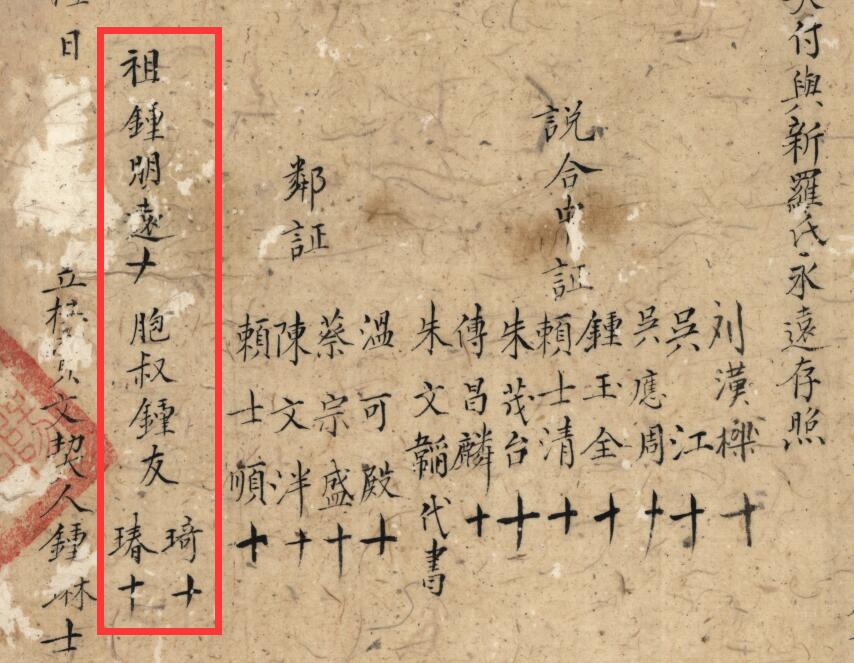 付與新羅氏永遠存照
説合中証
刘漢樑十
吳江十
吳應周十
鍾玉全十
賴士清十
朱茂台十
傅昌麟十
朱文韜代書
鄰証
溫可殿十
蔡宗盛十
陳文泮十
賴士順十
祖鍾朋遠十 胞叔鍾友琦十 瑃十
日
立杜 文契人鍾琳士